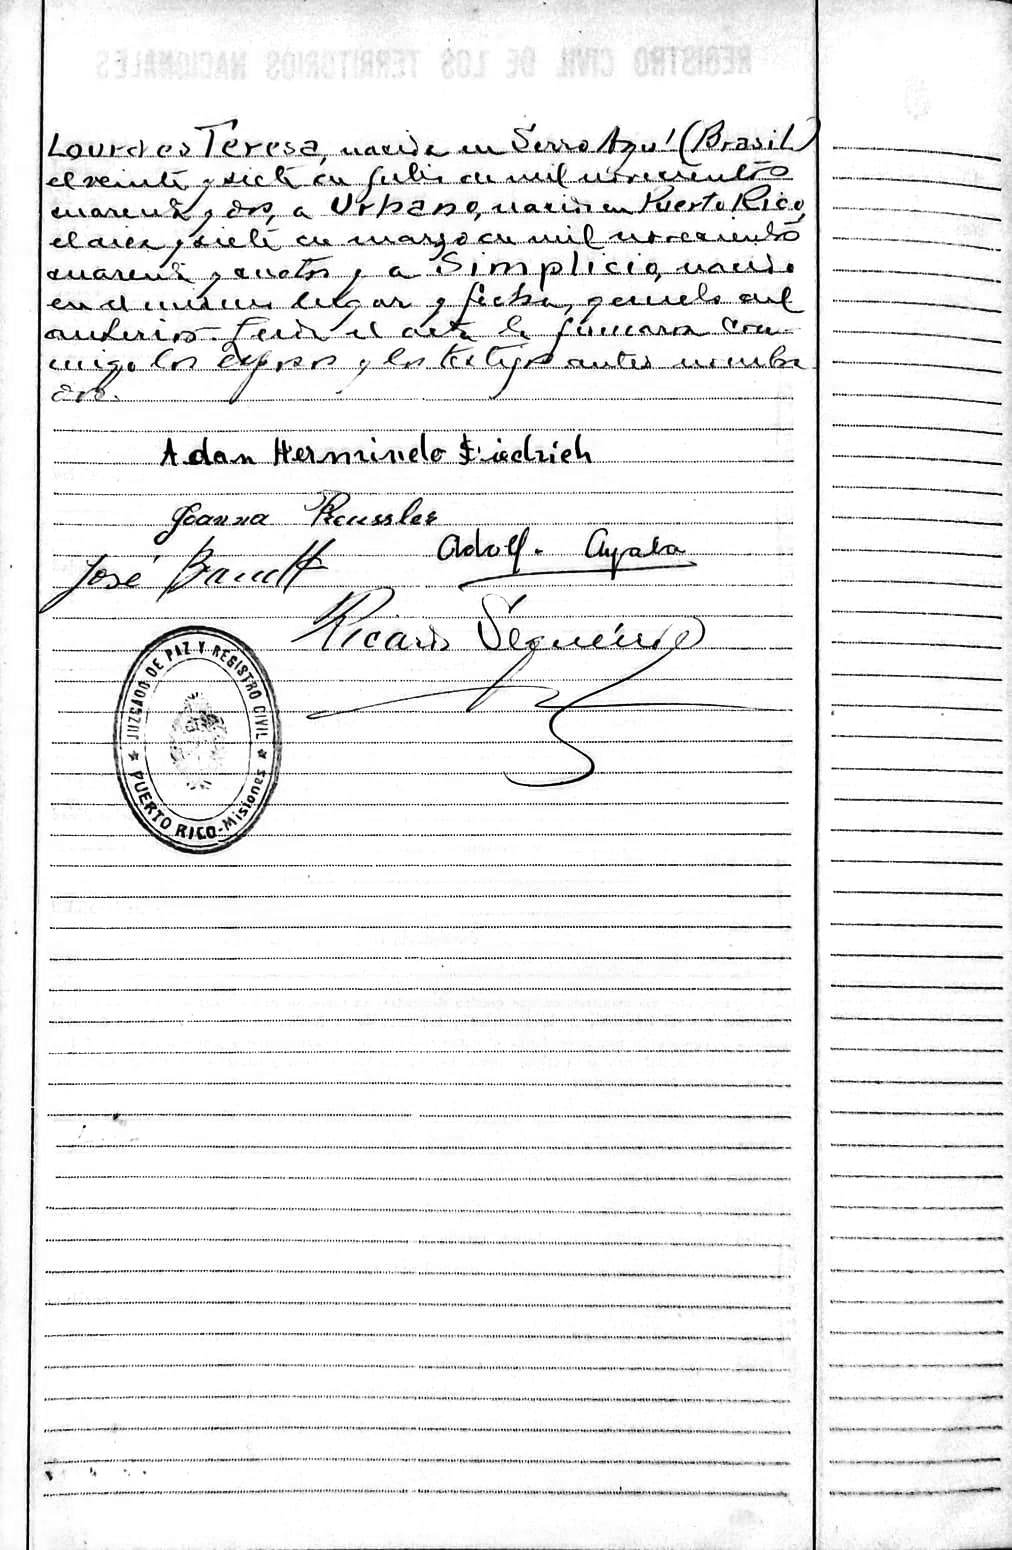 Lourdes Teresa, nacida en Serro Azul (Brasil)
el veinte y siete de julio de mil novecientos
cuarenta y dos, a Urbano, nacido en Puerto Rico,
el diez y siete de marzo de mil novecientos
cuarenta y cuatro y a Simplicio, nacido
en el mismo lugar y fecha, gemelo del
anterior. Leida el acta la firmaron con-
migo los esposos y los testigos antes nombra
dos.
Adan Hermindo Friedrich
Joanna Preussler
José
Adolf. Ayala
Ricardo
JUZGADO DE PAZ Y REGISTRO CIVIL
PUERTO RICO-Misiones